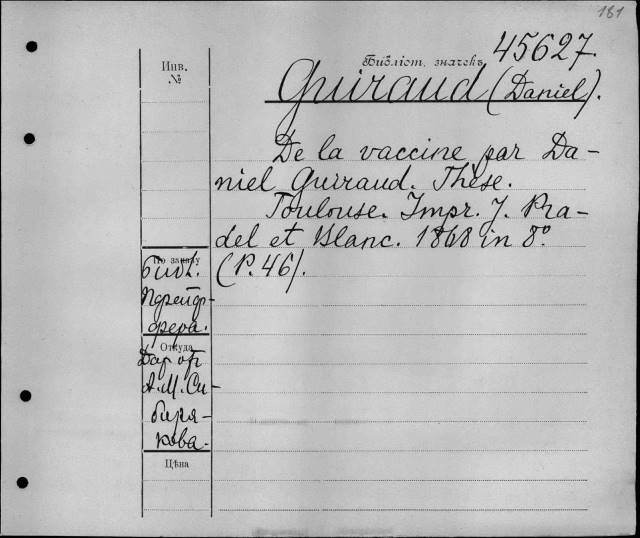 181
Инв.
№
Библіот. значекъ 45627.
Guiraud (Daniel).
De la vaccine par Da-
niel Guiraud. Thèse.
Toulouse. Impr. J. Pra-
del et Blanc. 1868 in 8º.
(P. 46).
По заказу
Библ.
Пфейф-
фера.
Откуда
Дар от
А. М. Си-
биря-
кова.
Цѣна